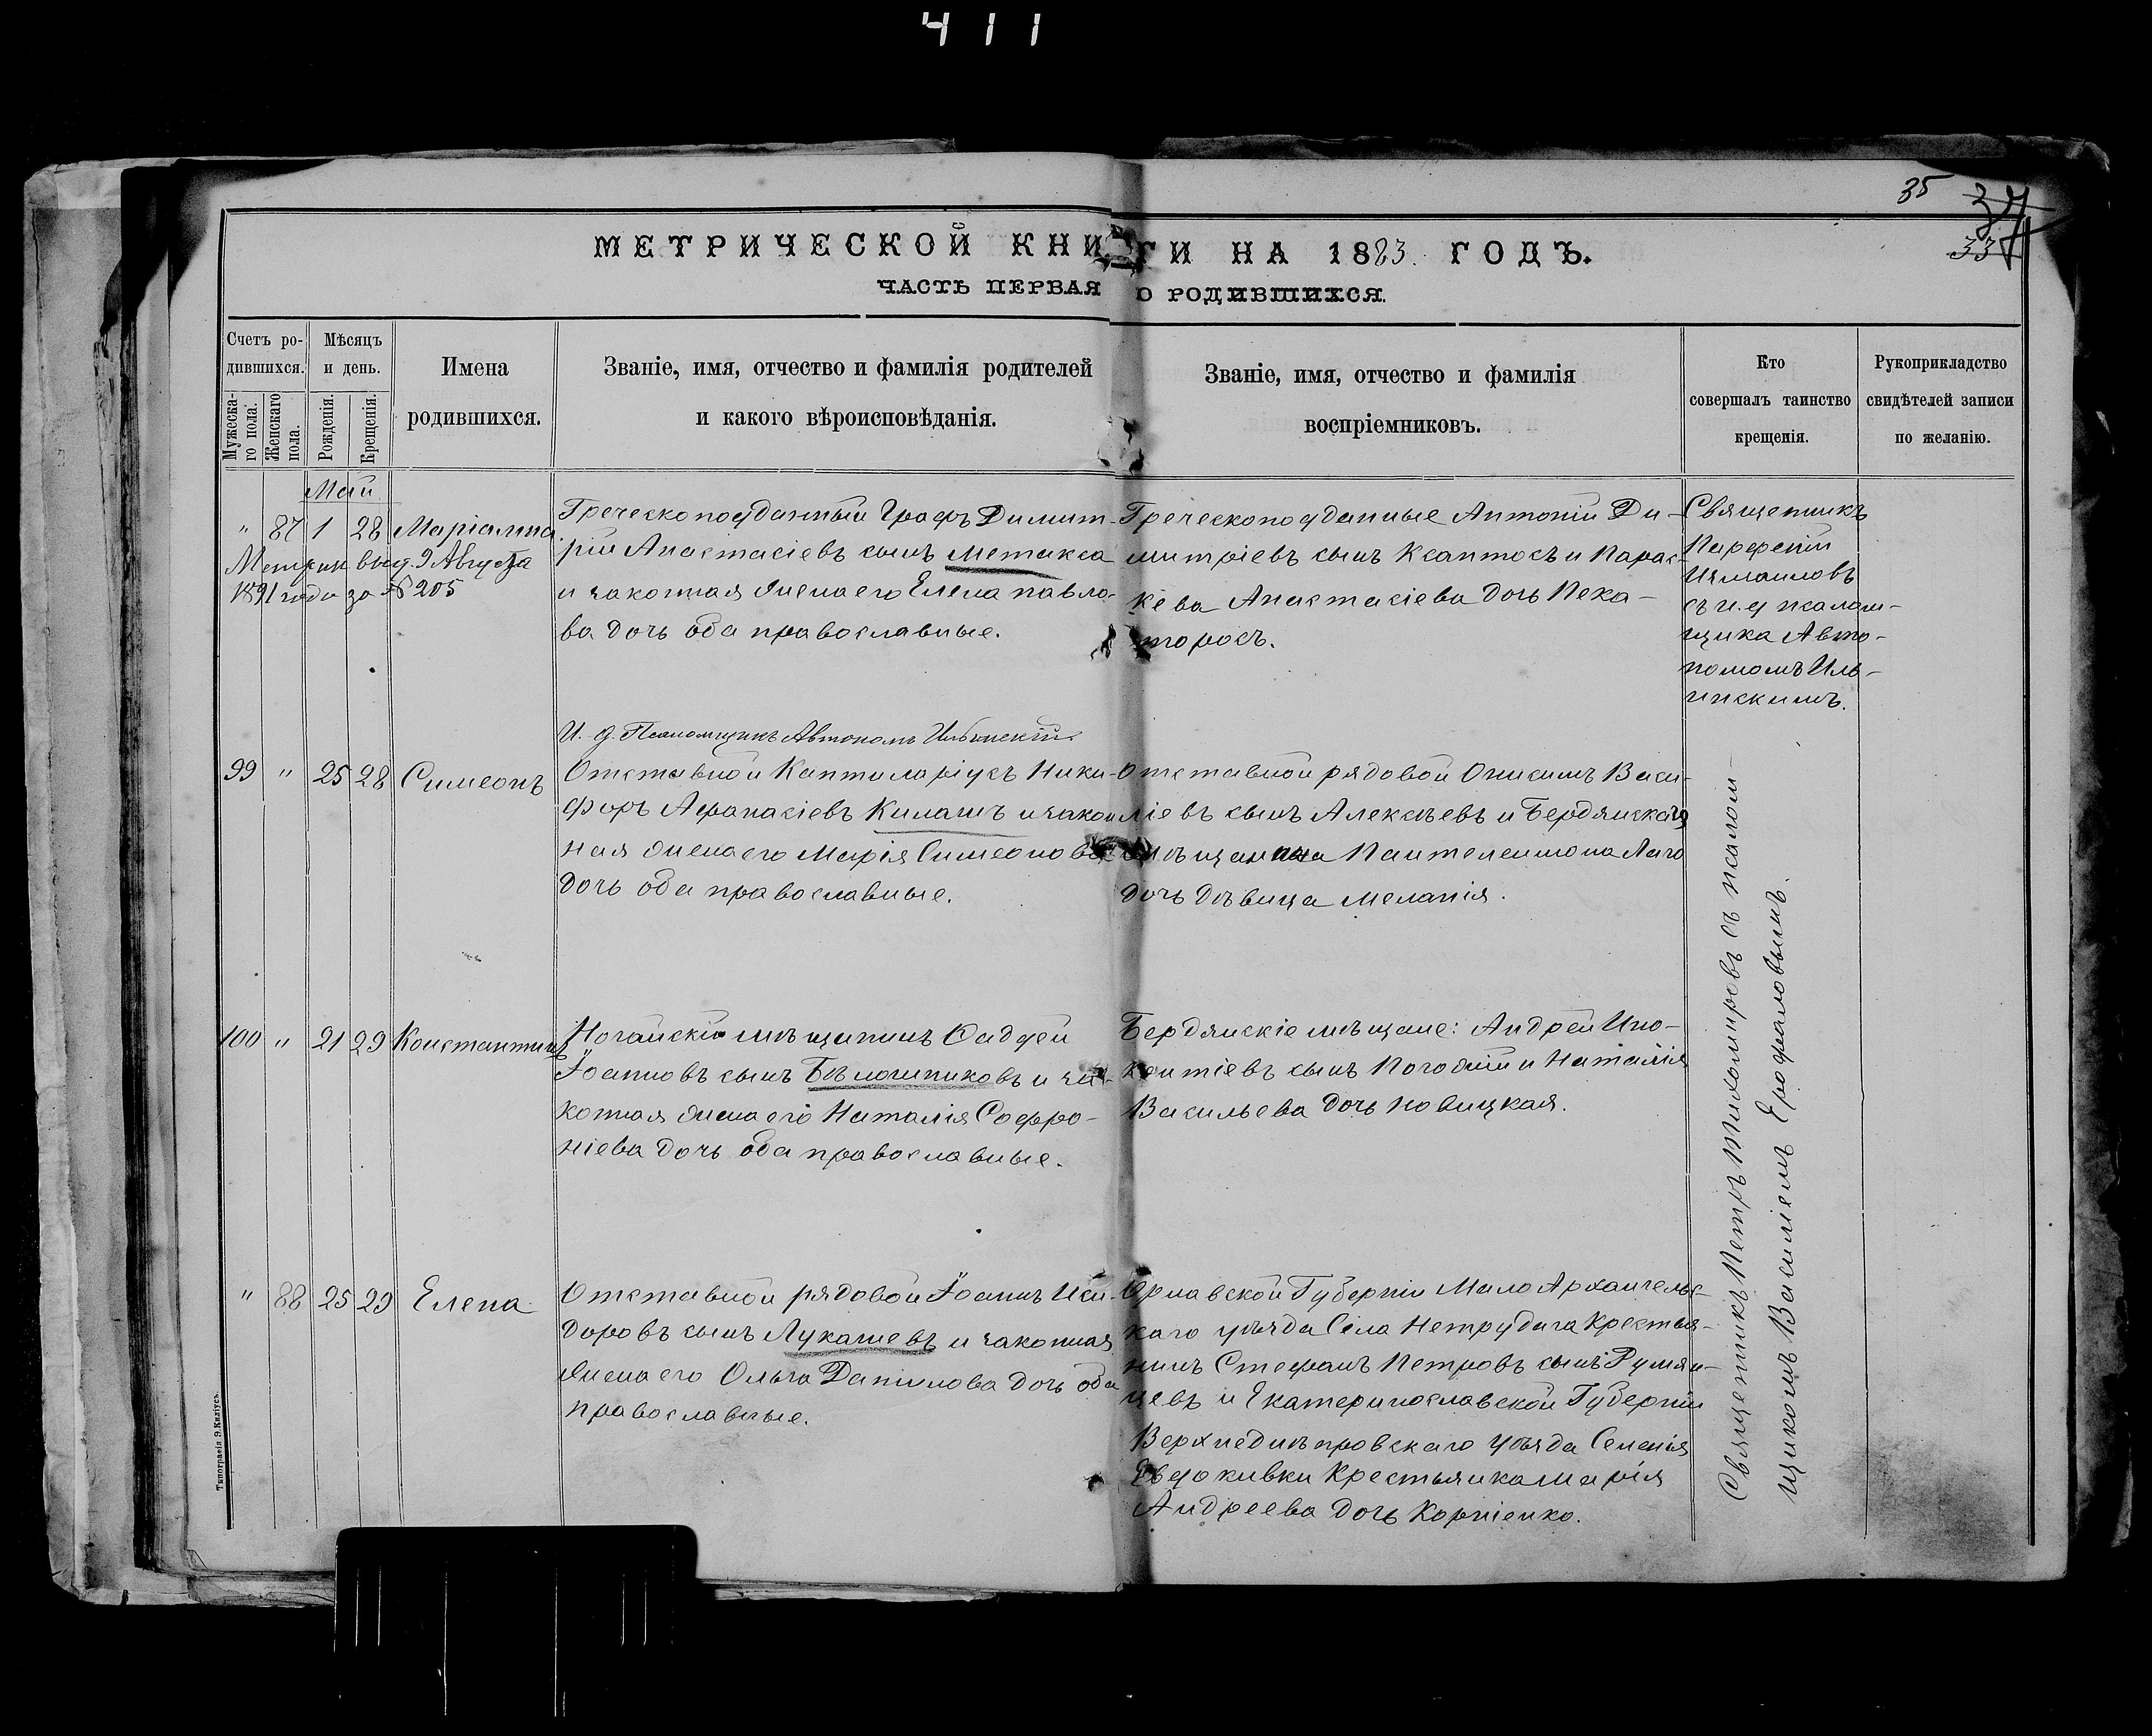 411
35 37
33
МЕТРИЧЕСКОЙ КНИГИ НА 1883 ГОДЪ.
ЧАСТЬ ПЕРВАЯ О РОДИВШИХСЯ.
Счетъ ро-
дившихся.
Мужеска-
го пола.
Женскаго
пола.
Мѣсяцъ
и день.
Рожденія.
Крещенія.
Имена
родившихся.
Званіе, имя, отчество и фамилія родителей
и какого вѣроисповѣданія.
Званіе, имя, отчество и фамилія
воспріемниковъ.
Кто
совершалъ таинство
крещенія.
Рукоприкладство
свидѣтелей записи
по желанію.
Май
" 87 1 28 Маріанна
Метрик выд. 9 Августа
1891 года за № 205
Греческоподданный Графъ Димит-
рій Анастасіевъ сынъ Метакса
и законная жена его Елена Павло-
ва дочь оба православные.
Греческоподданные Антоній Ди-
митріевъ сынъ Ксантосъ и Парас-
кева Анастасіева дочь Пека-
торосъ.
Священникъ
Парфеній
Измаиловъ
съ и. д псалом-
щика Авто-
номомъ Иль-
инскимъ.
И. д. Псаломщикъ Автономъ Ильинскій
99 " 25 28 Симеонъ
Отставной Каптинаріусъ Ники-
форъ Афанасіевъ Килашъ и закон
ная жена его Марія Симеонова
дочь оба православные.
Отставной рядовой Онисимъ Васи-
ліевъ сынъ Алексѣевъ и Бердянскаго
мѣщанина Пантелеимона Лаго
дочь дѣвица Меланія.
100 " 21 29 Константинъ
Ногайскій мѣщанинъ Фаддей
Іоанновъ сынъ Бѣлошниковъ и за-
конная жена его Наталія Софро-
ніева дочь оба православные.
Бердянскіе мѣщане: Андрей Ино-
кентіевъ сынъ Погодин и Наталія
Васильева дочь Новицкая.
" 88 25 29 Елена
Отставной рядовой Іоаннъ Иси-
доровъ сынъ Лукашевъ и законная
жена его Ольга Данилова дочь оба
православные.
Орловской Губерніи Мало Архангельс-
каго уѣзда Села Нетрудага Крестья-
нинъ Стефанъ Петровъ сынъ Румян-
цевъ и Екатеринославской Губерніи
Верхнеднѣпровскаго уѣзда Селенія
Евдокивки Крестьянка Марія
Андреева дочь Корніенко.
Священникъ Петръ Тихомировъ съ псалом-
щикомъ Василіемъ Ерофаловымъ.
Типографія Э. Килiусъ.